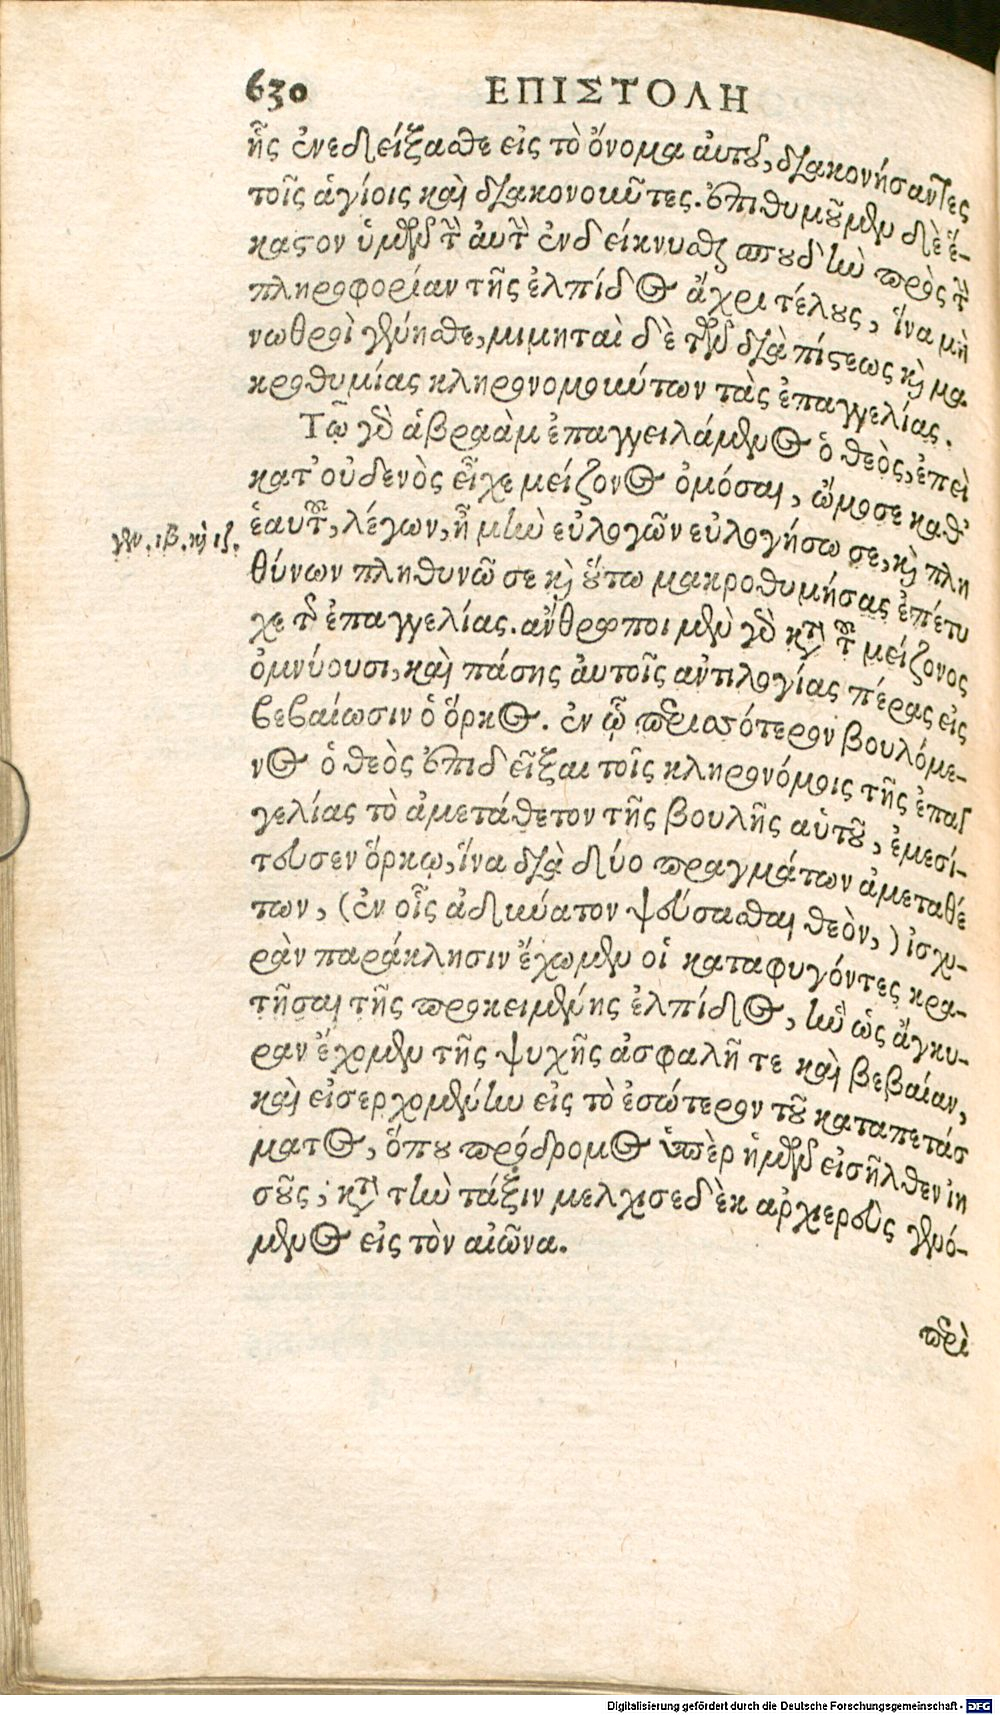 630 ΕΠΙΣΤΟΛΗ
ἧς ἐνεδείξασθε εἰς τὸ ὄνομα ἀυτοῦ, διακονήσαντες
τοῖς ἁγίοις καὶ διακονοῦντες. ἐπιθυμοῦμεν δὲ ἕ-
καστον ὑμῶν τὴν ἀυτὴν ἐνδείκνυσθαι σπουδὴν πρὸς τὴν
πληροφορίαν τῆς ἐλπίδος ἄχρι τέλους, ἵνα μὴ
νωθροὶ γένησθε, μιμηταὶ δὲ τῶν διὰ πίστεως καὶ μα
κροθυμίας κληρονομούντων τὰς ἐπαγγελίας.
Τῷ γὰρ ἁβραὰμ ἐπαγγειλάμενος ὁ θεὸς, ἐπεὶ
κατ' οὐδενὸς εἶχε μείζονος ὀμόσαι, ὤμοσε καθ'
ἑαυτοῦ, λέγων, ἦ μὴν εὐλογῶν εὐλογήσω σε, καὶ πλη
γεν. ιβ. καὶ ιζ.
θύνων πληθυνῶ σε καὶ οὕτω μακροθυμήσας ἐπέτυ
χε τῆς ἐπαγγελίας. ἄνθρωποι μὲν γὰρ κατὰ τοῦ μείζονος
ὀμνύουσι, καὶ πάσης ἀυτοῖς ἀντιλογίας πέρας εἰς
βεβαίωσιν ὁ ὅρκος. ἐν ᾧ περισσότερον βουλόμε-
νος ὁ θεὸς ἐπιδεῖξαι τοῖς κληρονόμοις τῆς ἐπαγ
γελίας τὸ ἀμετάθετον τῆς βουλῆς αὑτοῦ, ἐμεσί-
τευσεν ὅρκῳ, ἵνα διὰ δύο πραγμάτων ἀμεταθέ
των, (ἐν οἷς ἀδύνατον ψεύσασθαι θεὸν,) ἰσχυ-
ρὰν παράκλησιν ἔχωμεν οἱ καταφυγόντες κρα-
τῆσαι τῆς προκειμένης ἐλπίδος, ἣν ὡς ἄγκυ-
ραν ἔχομεν τῆς ψυχῆς ἀσφαλῆ τε καὶ βεβαίαν,
καὶ εἰσερχομένην εἰς τὸ ἐσώτερον τοῦ καταπετάσ
ματος, ὅπου πρόδρομος ὑπὲρ ἡμῶν εἰσῆλθεν ἰη
σοῦς, κατὰ τὴν τάξιν μελχισεδὲκ ἀρχιερεὺς γενό-
μενος εἰς τὸν αἰῶνα.
περὶ
Digitalisierung gefördert durch die Deutsche Forschungsgemeinschaft - DFG